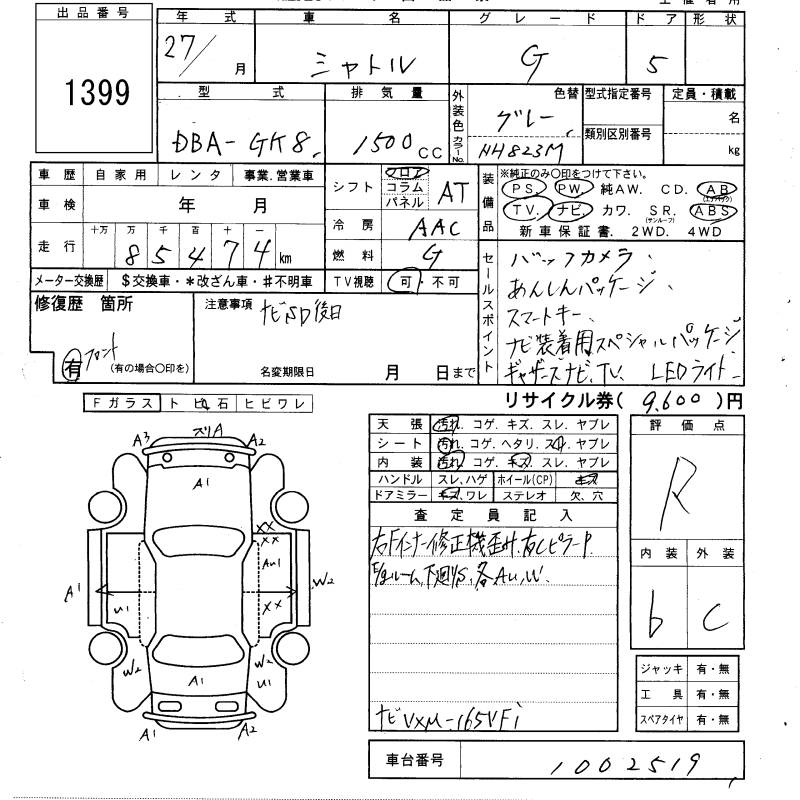 出品番号
1399
年式 車名 グレード ドア 形状
27/ 月 シャトル G 5
型式 排気量 外装色 色替 型式指定番号 定員・積載
DBA-GK8 1500cc カラーNo. グレー NH823M 類別区別番号 名 kg
車歴 自家用 レンタ 事業.営業車
車検 年 月
走行 十万 万 千 百 十 一
85474 km
メーター交換歴 $交換車・*改ざん車・#不明車
シフト フロア コラム パネル AT
冷房 AAC
燃料 G
TV視聴 可・不可
装備品 ※純正のみ○印をつけて下さい。
PS. PW. 純AW. CD. AB (エアバック)
TV. ナビ. カワ. SR. (サンルーフ) ABS
新車保証書. 2WD. 4WD
セールスポイント
バックカメラ、
あんしんパッケージ、
スマートキー、
ナビ装着用スペシャルパッケージ
ギャザースナビ、TV、LEDライト
修復歴 箇所
有 フロント (有の場合○印を)
注意事項 ナビSD後日
名変期限日 月 日まで
リサイクル券( 9,600 )円
Fガラス トビ石 ヒビワレ
A3 スリA A2
A1
XX
XX
AU1
A1 U1 XX W2
W2 A1 W2
U1
A1 A2
天張 汚れ. コゲ. キズ. スレ. ヤブレ
シート 汚れ. コゲ. ヘタリ. スレ. ヤブレ
内装 汚れ. コゲ. キズ. スレ. ヤブレ
ハンドル スレ.ハゲ ホイール(CP) キズ
ドアミラー キズ.ワレ ステレオ 欠.穴
査定員記入
右Fインナー修正機歪み.右CピラーP
下廻りS、各AU,W.
ナビ VXM-165VFi
評価点
R
内装 外装
b C
ジャッキ 有・無
工具 有・無
スペアタイヤ 有・無
車台番号 1002519